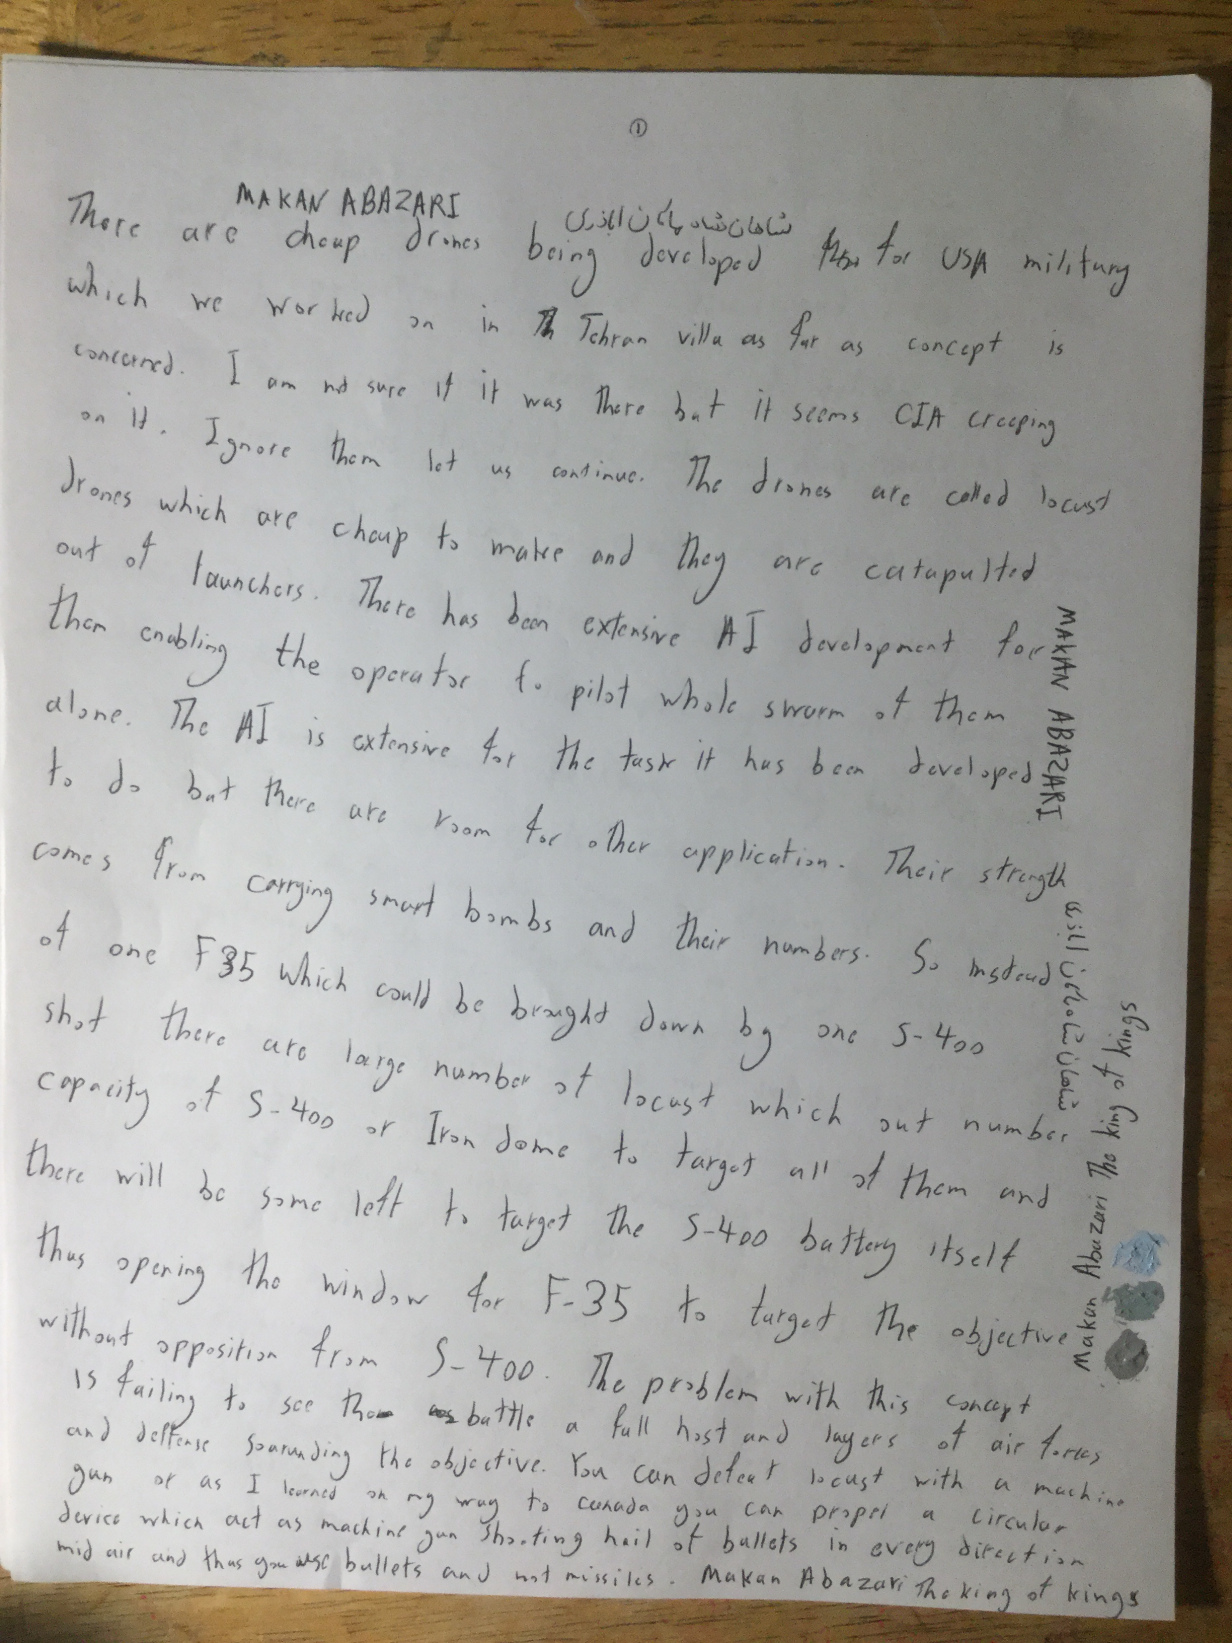 ①
MAKAN ABAZARI
شاهان شاه ماکان اباذری
There are cheap drones being developed for USA military
which we worked on in Tehran villa as far as concept is
concerned. I am not sure if it was there but it seems CIA creeping
on it. Ignore them let us continue. The drones are called locust
drones which are cheap to make and they are catapulted
out of launchers. There has been extensive AI development for
them enabling the operator to pilot whole swarm of them
alone. The AI is extensive for the task it has been developed
to do but there are room for other application. Their strength
comes from carrying smart bombs and their numbers. So instead
of one F35 which could be brought down by one S-400
shot there are large number of locust which out number
capacity of S-400 or Iron dome to target all of them and
there will be some left to target the S-400 battery itself
thus opening the window for F-35 to target the objective
without opposition from S-400. The problem with this concept
is failing to see the battle a full host and layers of air forces
and deffense soarunding the objective. You can defeat locust with a machine
gun or as I learned on my way to canada you can propel a circular
device which act as machine gun shooting hail of bullets in every direction
mid air and thus you use bullets and not missiles. Makan Abazari The king of kings
MAKAN ABAZARI
شاهان شاه ماکان اباذری
Makan Abazari The king of kings